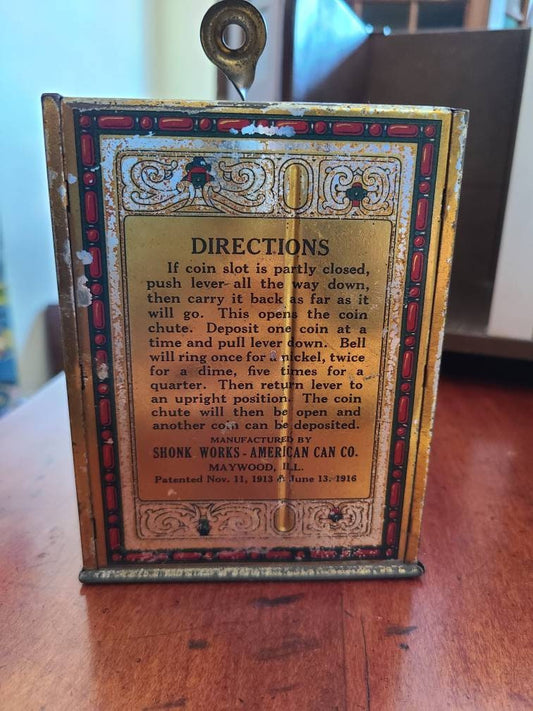 DIRECTIONS
If coin slot is partly closed,
push lever all the way down,
then carry it back as far as it
will go. This opens the coin
chute. Deposit one coin at a
time and pull lever down. Bell
will ring once for a nickel, twice
for a dime, five times for a
quarter. Then return lever to
an upright position. The coin
chute will then be open and
another coin can be deposited.
MANUFACTURED BY
SHONK WORKS - AMERICAN CAN CO.
MAYWOOD, ILL.
Patented Nov. 11, 1913 & June 13, 1916